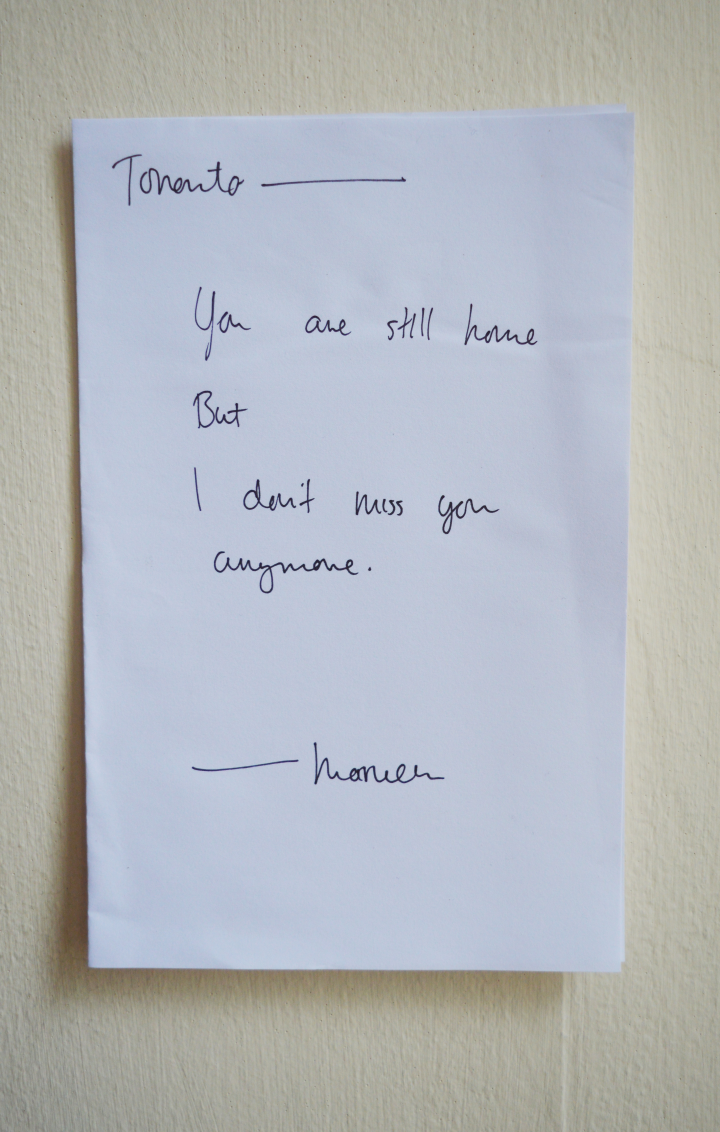 Toronto —
You are still home
But
I don't miss you
anymore.
—